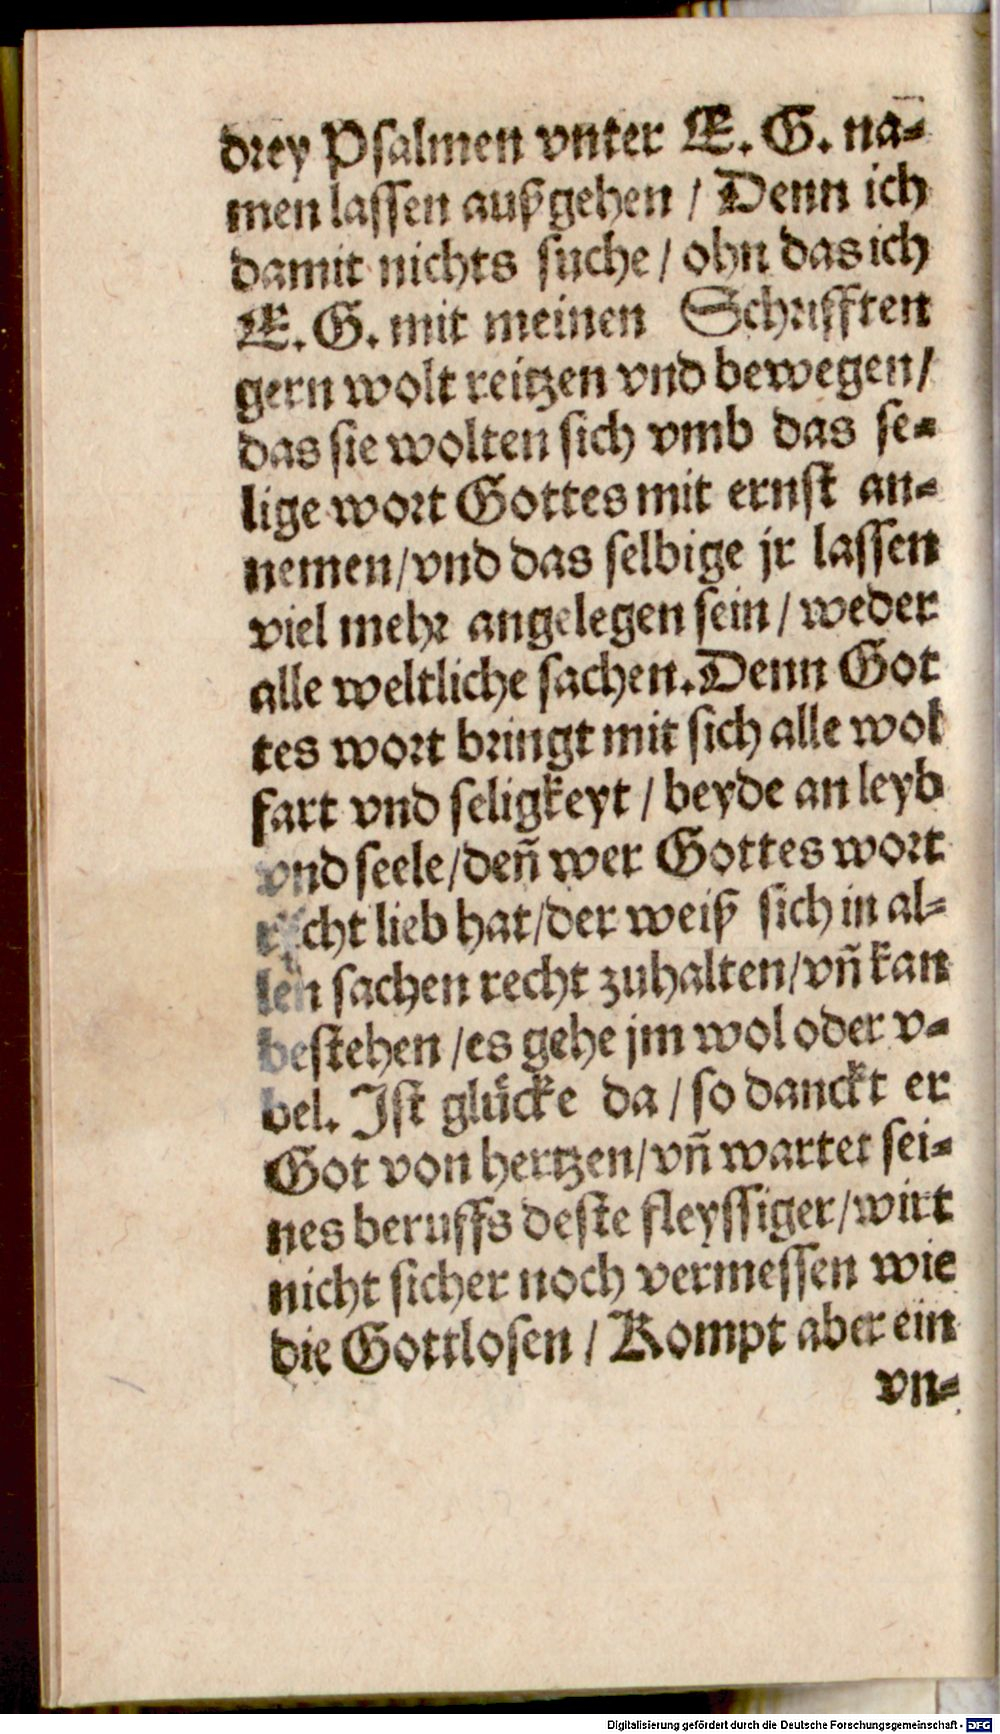 drey Psalmen vnter E. G. na-
men lassen außgehen / Denn ich
damit nichts suche / ohn das ich
E. G. mit meinen Schrifften
gern wolt reitzen vnd bewegen /
das sie wolten sich vmb das se-
lige wort Gottes mit ernst an-
nemen / vnd das selbige jr lassen
viel mehr angelegen sein / weder
alle weltliche sachen. Denn Got
tes wort bringt mit sich alle wol
fart vnd seligkeyt / beyde an leyb
vnd seele / deñ wer Gottes wort
recht lieb hat / der weiß sich in al-
len sachen recht zuhalten / vñ kan
bestehen / es gehe jm wol oder v-
bel. Ist glücke da / so danckt er
Got von hertzen / vñ wartet sei-
nes beruffs deste fleyssiger / wirt
nicht sicher noch vermessen wie
die Gottlosen / Kompt aber ein
vn-
Digitalisierung gefördert durch die Deutsche Forschungsgemeinschaft - DFG